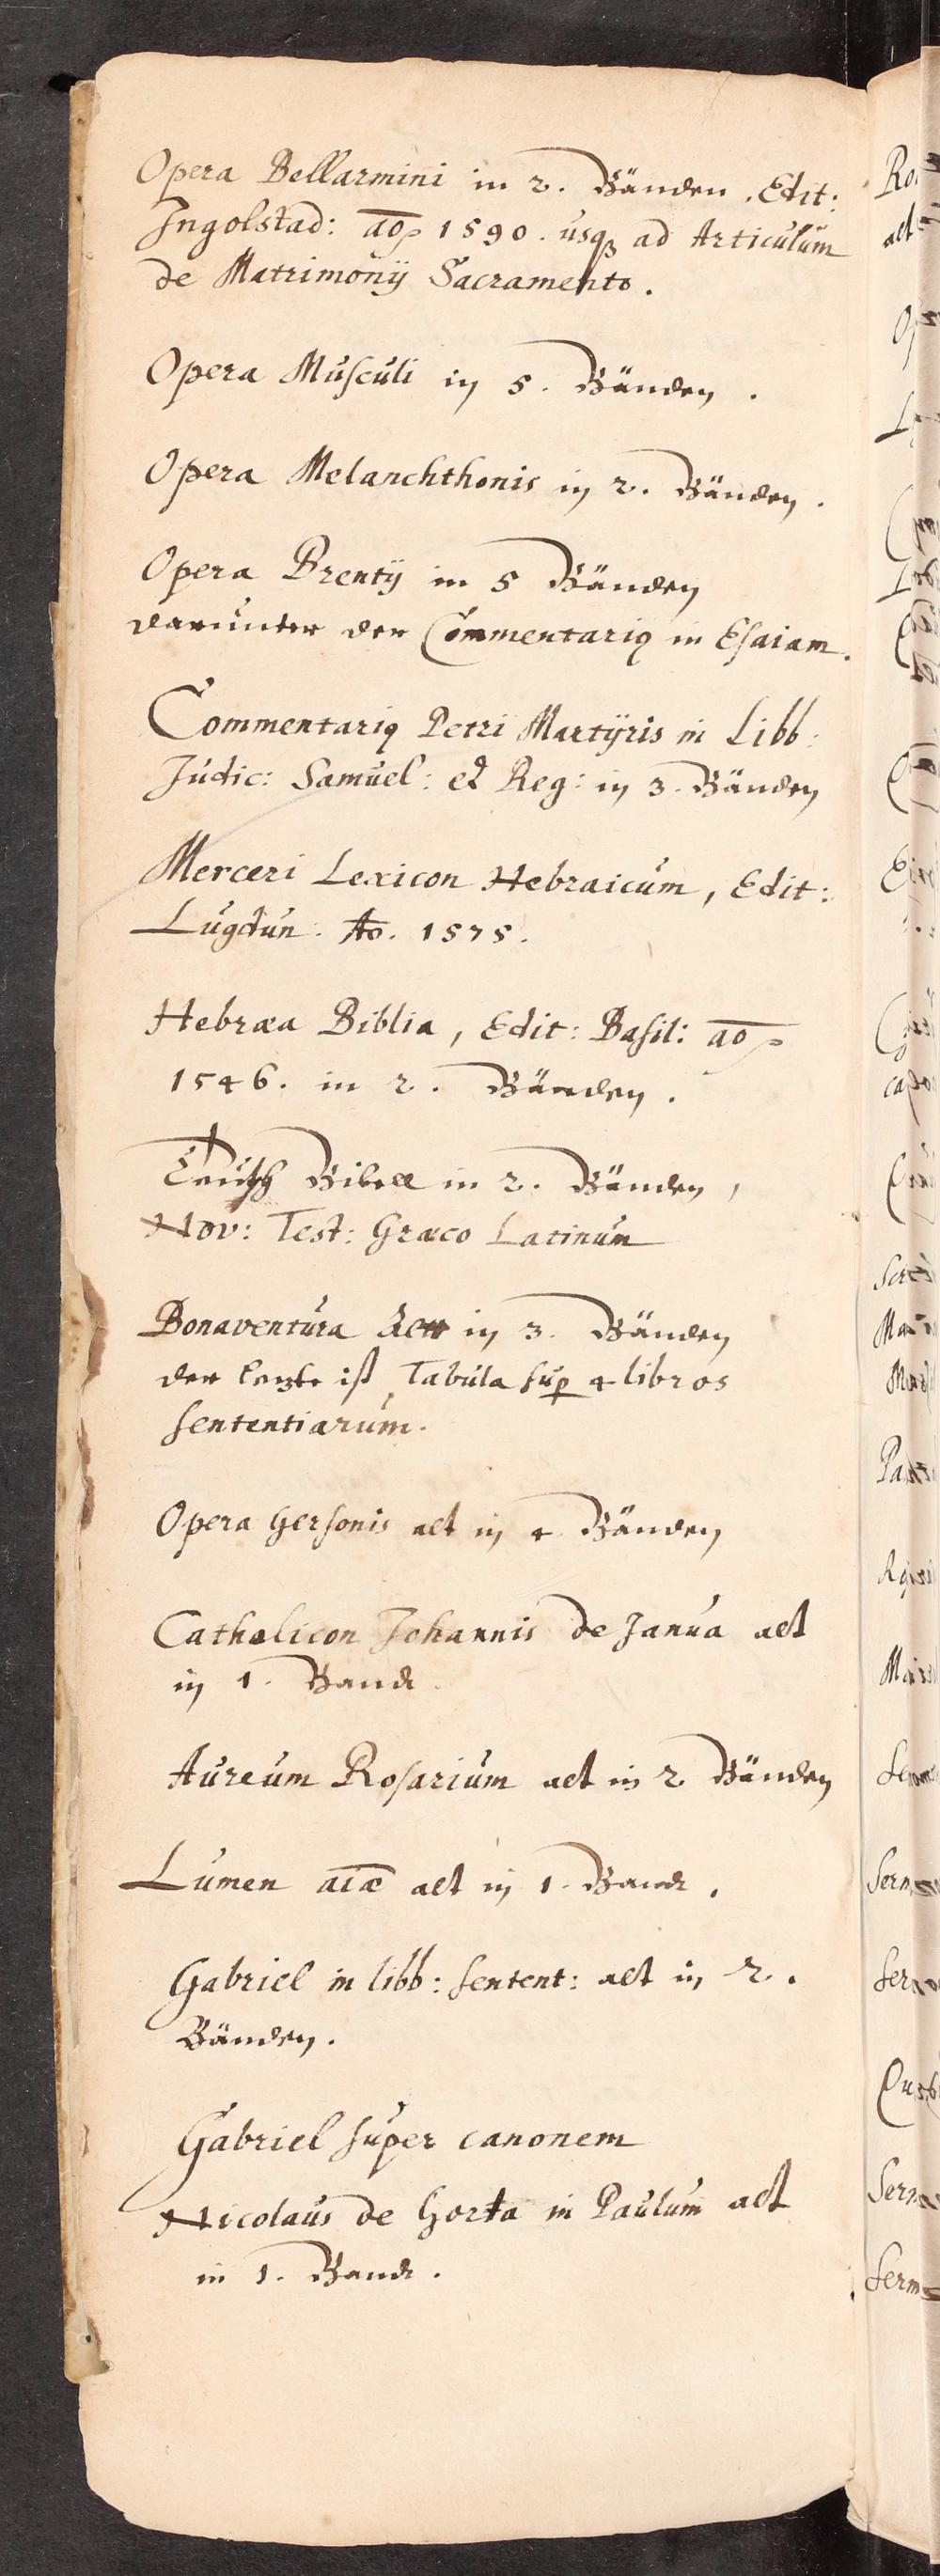 Opera Bellarmini in 2. Bänden. Edit:
Ingolstad: ao 1590. usq₃ ad Articulum
de Matrimonij Sacramento.
Opera Musculi in 5. Bänden.
Opera Melanchthonis in 2. Bänden.
Opera Brentij in 5 Bänden
darunter der Commentariꝰ in Esaiam.
Commentariꝰ Petri Martyris in Libb:
Judic: Samuel: et Reg: in 3. Bänden
Merceri Lexicon Hebraicum, Edit:
Lugdun: Ao. 1575.
Hebræa Biblia, Edit: Basil: ao
1546. in 2. Bänden.
Teutsch Bibell in 2. Bänden,
Nov: Test: Græco Latinum
Bonaventura alt in 3. Bänden
der letzte ist Tabula sup 4 libros
sententiarum.
Opera Gersonis alt in 4 Bänden
Catholicon Johannis de Janua alt
in 1. Bandt
Aureum Rosarium alt in 2 Bänden
Lumen aīæ alt in 1. Bandt.
Gabriel in libb: sentent: alt in 2.
Bänden.
Gabriel super canonem
Nicolaus de Gorta in Paulum alt
in 1. Bandt.